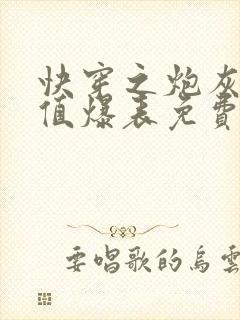 快穿之炮灰
值爆表免費
要唱歌的烏雲